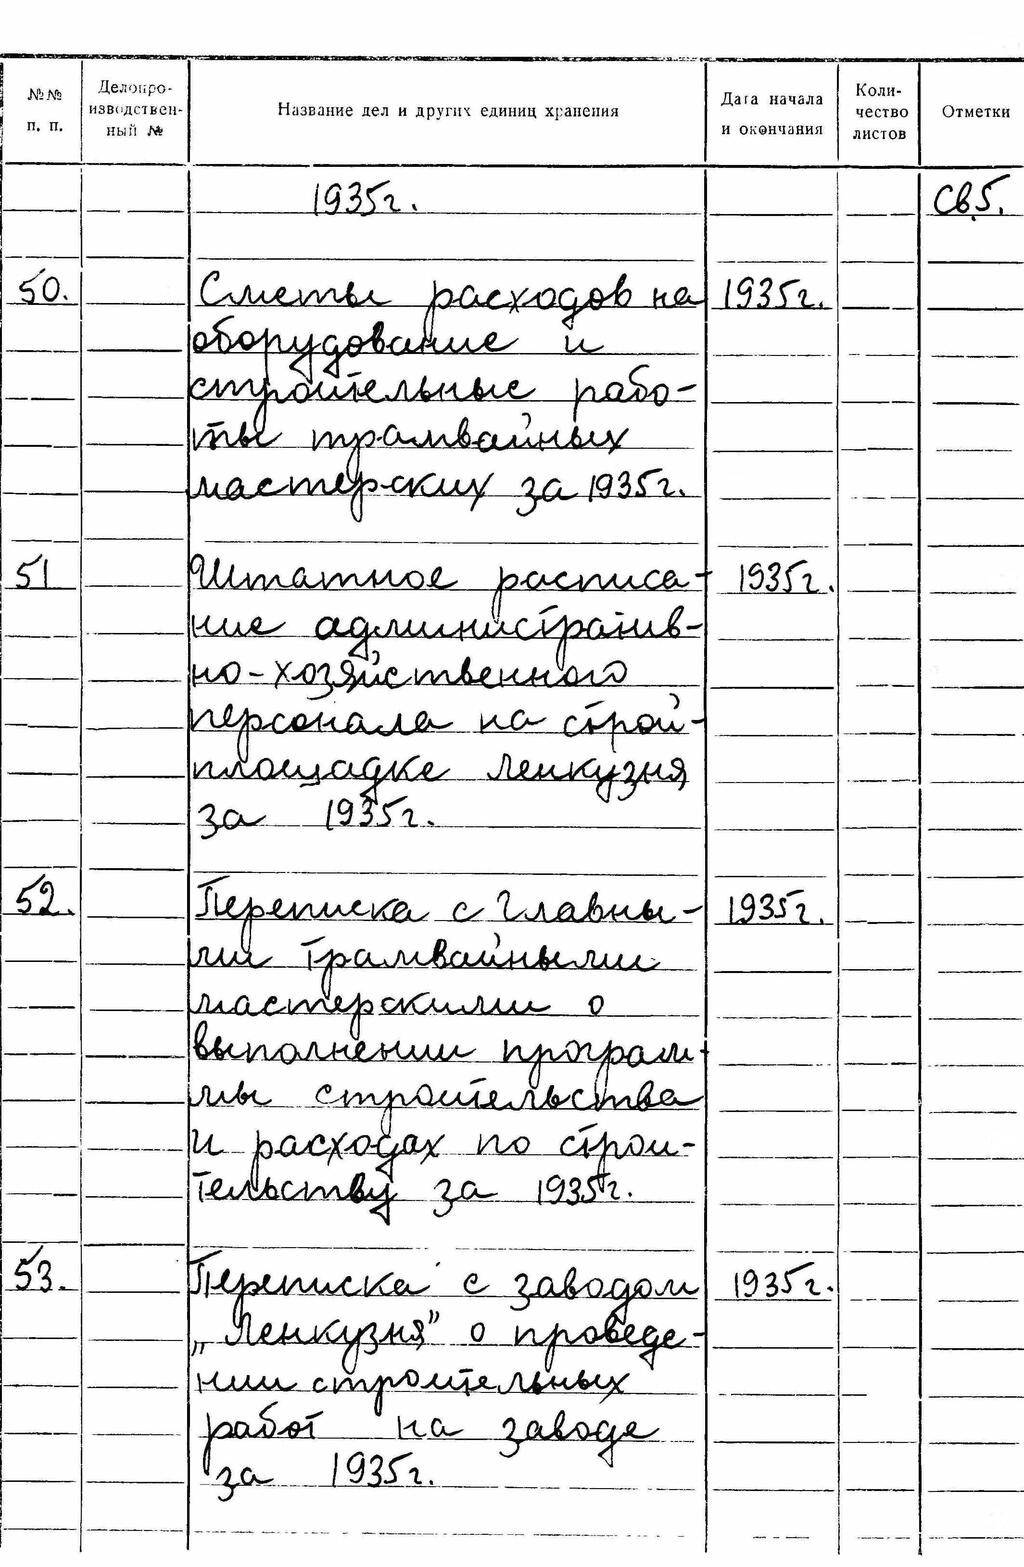 №№ п. п.
Делопро-
изводствен-
ный №
Название дел и других единиц хранения
Дата начала
и окончания
Коли-
чество
листов
Отметки
1935г.
Св.5.
50.
Сметы расходов на
1935г.
оборудование и
строительные рабо-
ты трамвайных
мастерских за 1935г.
51
Штатное расписа-
1935г.
ние административ-
но-хозяйственного
персонала на строй-
площадке Ленкузня
за 1935г.
52.
Переписка с Главны-
1935г.
ми трамвайными
мастерскими о
выполнении програм-
мы строительства
и расходах по строи-
тельству за 1935г.
53.
Переписка с заводом
1935г.
„Ленкузня" о проведе-
нии строительных
работ на заводе
за 1935г.